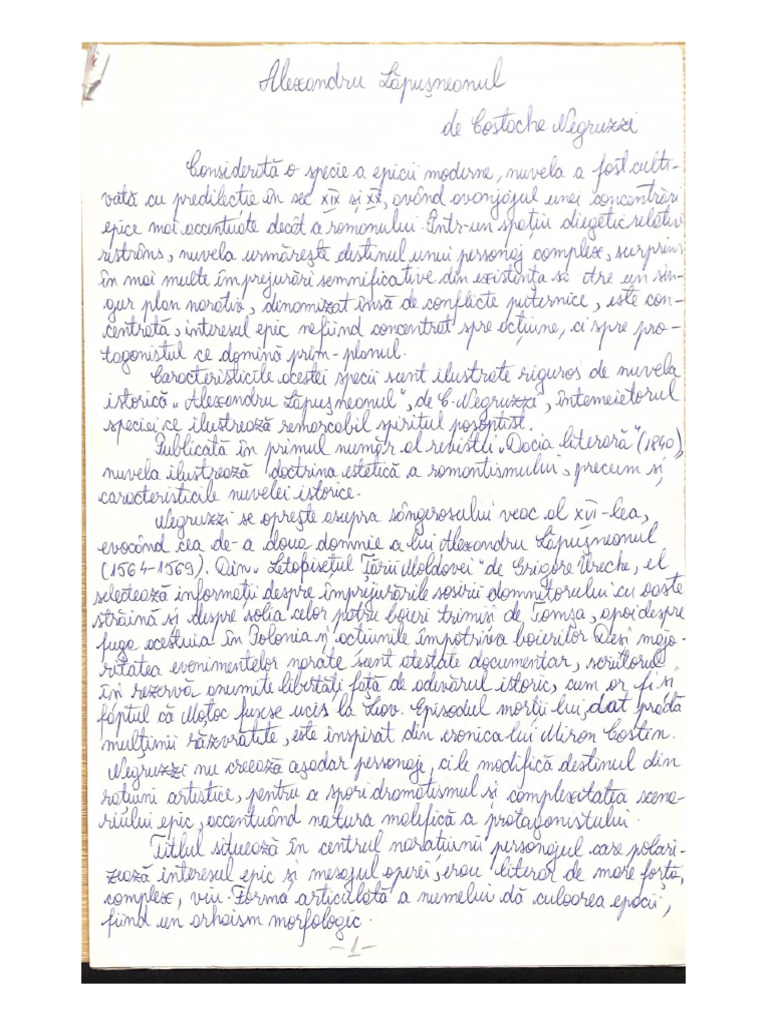 Alexandru Lăpușneanul
de Costache Negruzzi
Considerată o specie a epicii moderne, nuvela a fost culti-
vată cu predilecție în sec XIX și XX, având avanjajul unei concentrări
epice mai accentuate decât a romanului. Într-un spațiu diegetic relativ
ristrâns, nuvela urmărește destinul unui personaj complex, surprins
în mai multe împrejurări semnificative din existența sa. Are un sin-
gur plan narativ, dinamizat însă de conflicte puternice, este con-
centrată, interesul epic nefiind concentrat spre acțiune, ci spre pro-
tagonistul ce domină prim-planul.
Caracteristicile acestei specii sunt ilustrate riguros de nuvela
istorică „Alexandru Lăpușneanul", de C. Negruzzi, întemeietorul
speciei ce ilustrează remarcabil spiritul pașoptist.
Publicată în primul număr al revistei „Dacia literară" (1840),
nuvela ilustrează doctrina estetică a romantismului, precum și
caracteristicile nuvelei istorice.
Negruzzi se oprește asupra sângerosului veac al XVI-lea,
evocând cea de-a doua domnie a lui Alexandru Lăpușneanul
(1564-1569). Din „Letopisețul Țării Moldovei" de Grigore Ureche, el
selectează informații despre împrejurările sosirii domnitorului cu oaste
străină și despre solia celor patru boieri trimiși de Tomșa, apoi despre
fuga acestuia în Polonia și acțiunile împotriva boierilor. Deși majo-
ritatea evenimentelor narate sunt atestate documentar, scriitorul
își rezervă anumite libertăți față de adevărul istoric, cum ar fi și
faptul că Moțoc fusese ucis la Liov. Episodul morții lui, dat pradă
mulțimii răzvrătite, este inspirat din cronica lui Miron Costin.
Negruzzi nu creează așadar personaje, ci le modifică destinul din
rațiuni artistice, pentru a spori dramatismul și complexitatea scena-
riului epic, accentuând natura malefică a protagonistului.
Titlul situează în centrul narațiunii personajul care polari-
zează interesul epic și mesajul operei, erou literar de mare forță,
complex, viu. Forma articulată a numelui dă culoarea epocii,
fiind un arhaism morfologic.
-1-